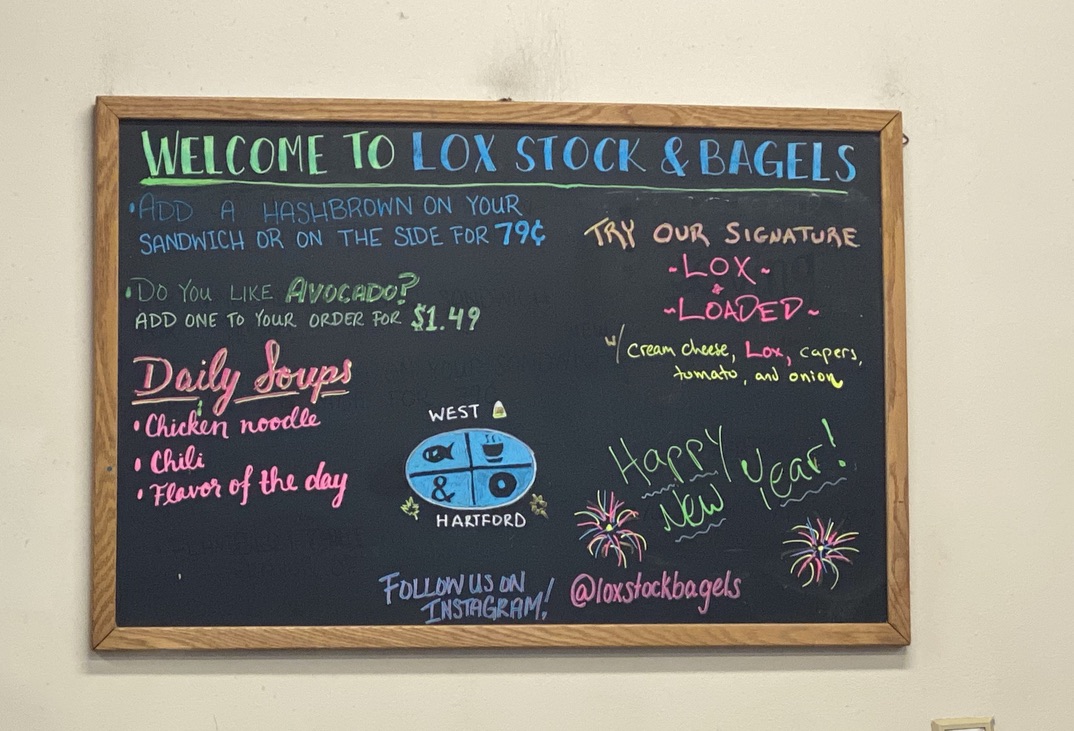 WELCOME TO LOX STOCK & BAGELS
• ADD A HASHBROWN ON YOUR
SANDWICH OR ON THE SIDE FOR 79¢
• DO YOU LIKE AVOCADO?
ADD ONE TO YOUR ORDER FOR $1.49
Daily Soups
• Chicken noodle
• Chili
• Flavor of the day
TRY OUR SIGNATURE
~LOX~
&
~LOADED~
w/ cream cheese, Lox, capers,
tomato, and onion
WEST
&
HARTFORD
Happy
New
Year!
FOLLOW US ON
INSTAGRAM!
@loxstockbagels